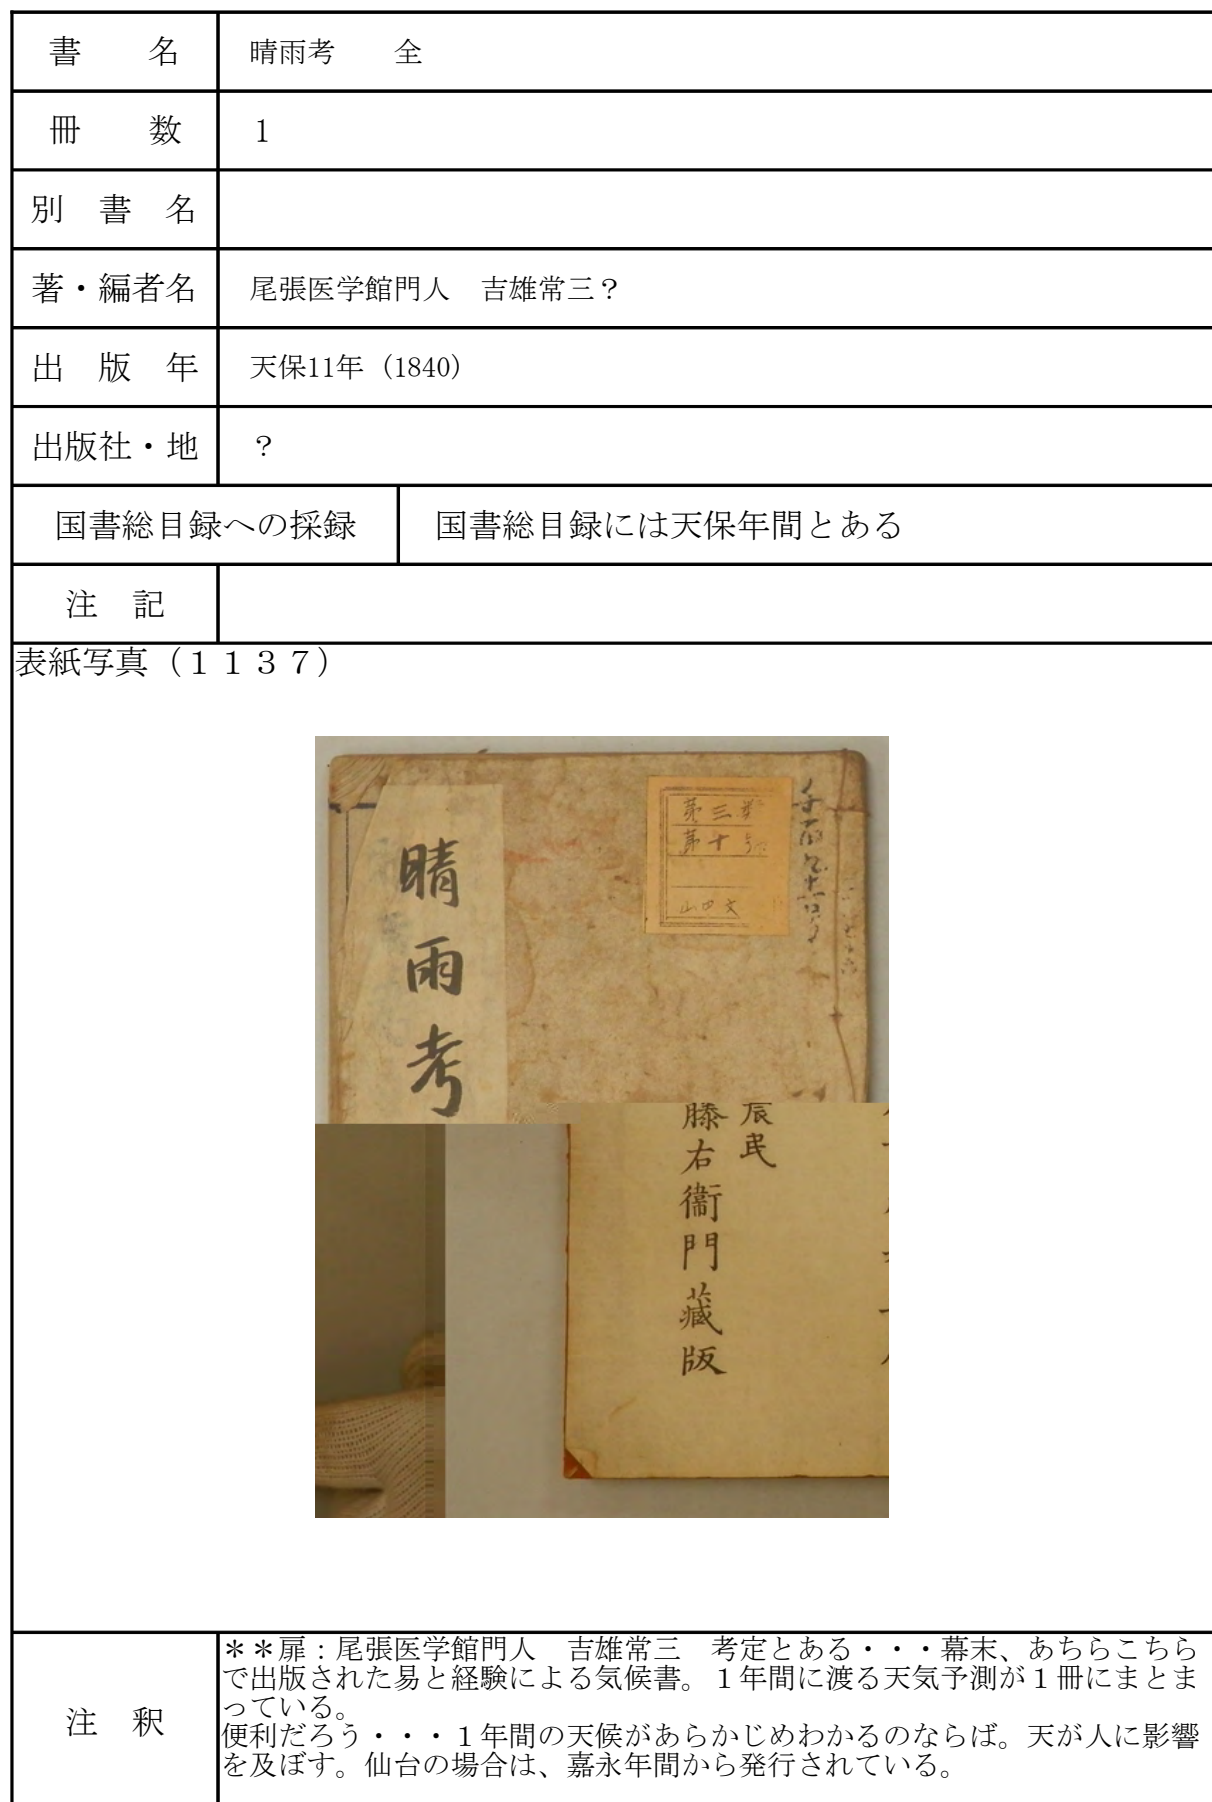 書　名　晴雨考　全
冊　数　１
別　書　名
著・編者名　尾張医学館門人　吉雄常三？
出　版　年　天保11年（1840）
出版社・地　？
国書総目録への採録　国書総目録には天保年間とある
注　記
表紙写真（１１３７）
晴雨考
第三
第十
山中文
辰
藤右衞門藏版
注　釈
＊＊扉：尾張医学館門人　吉雄常三　考定とある・・・幕末、あちらこちら
で出版された易と経験による気候書。１年間に渡る天気予測が１冊にまとま
っている。
便利だろう・・・１年間の天候があらかじめわかるのならば。天が人に影響
を及ぼす。仙台の場合は、嘉永年間から発行されている。